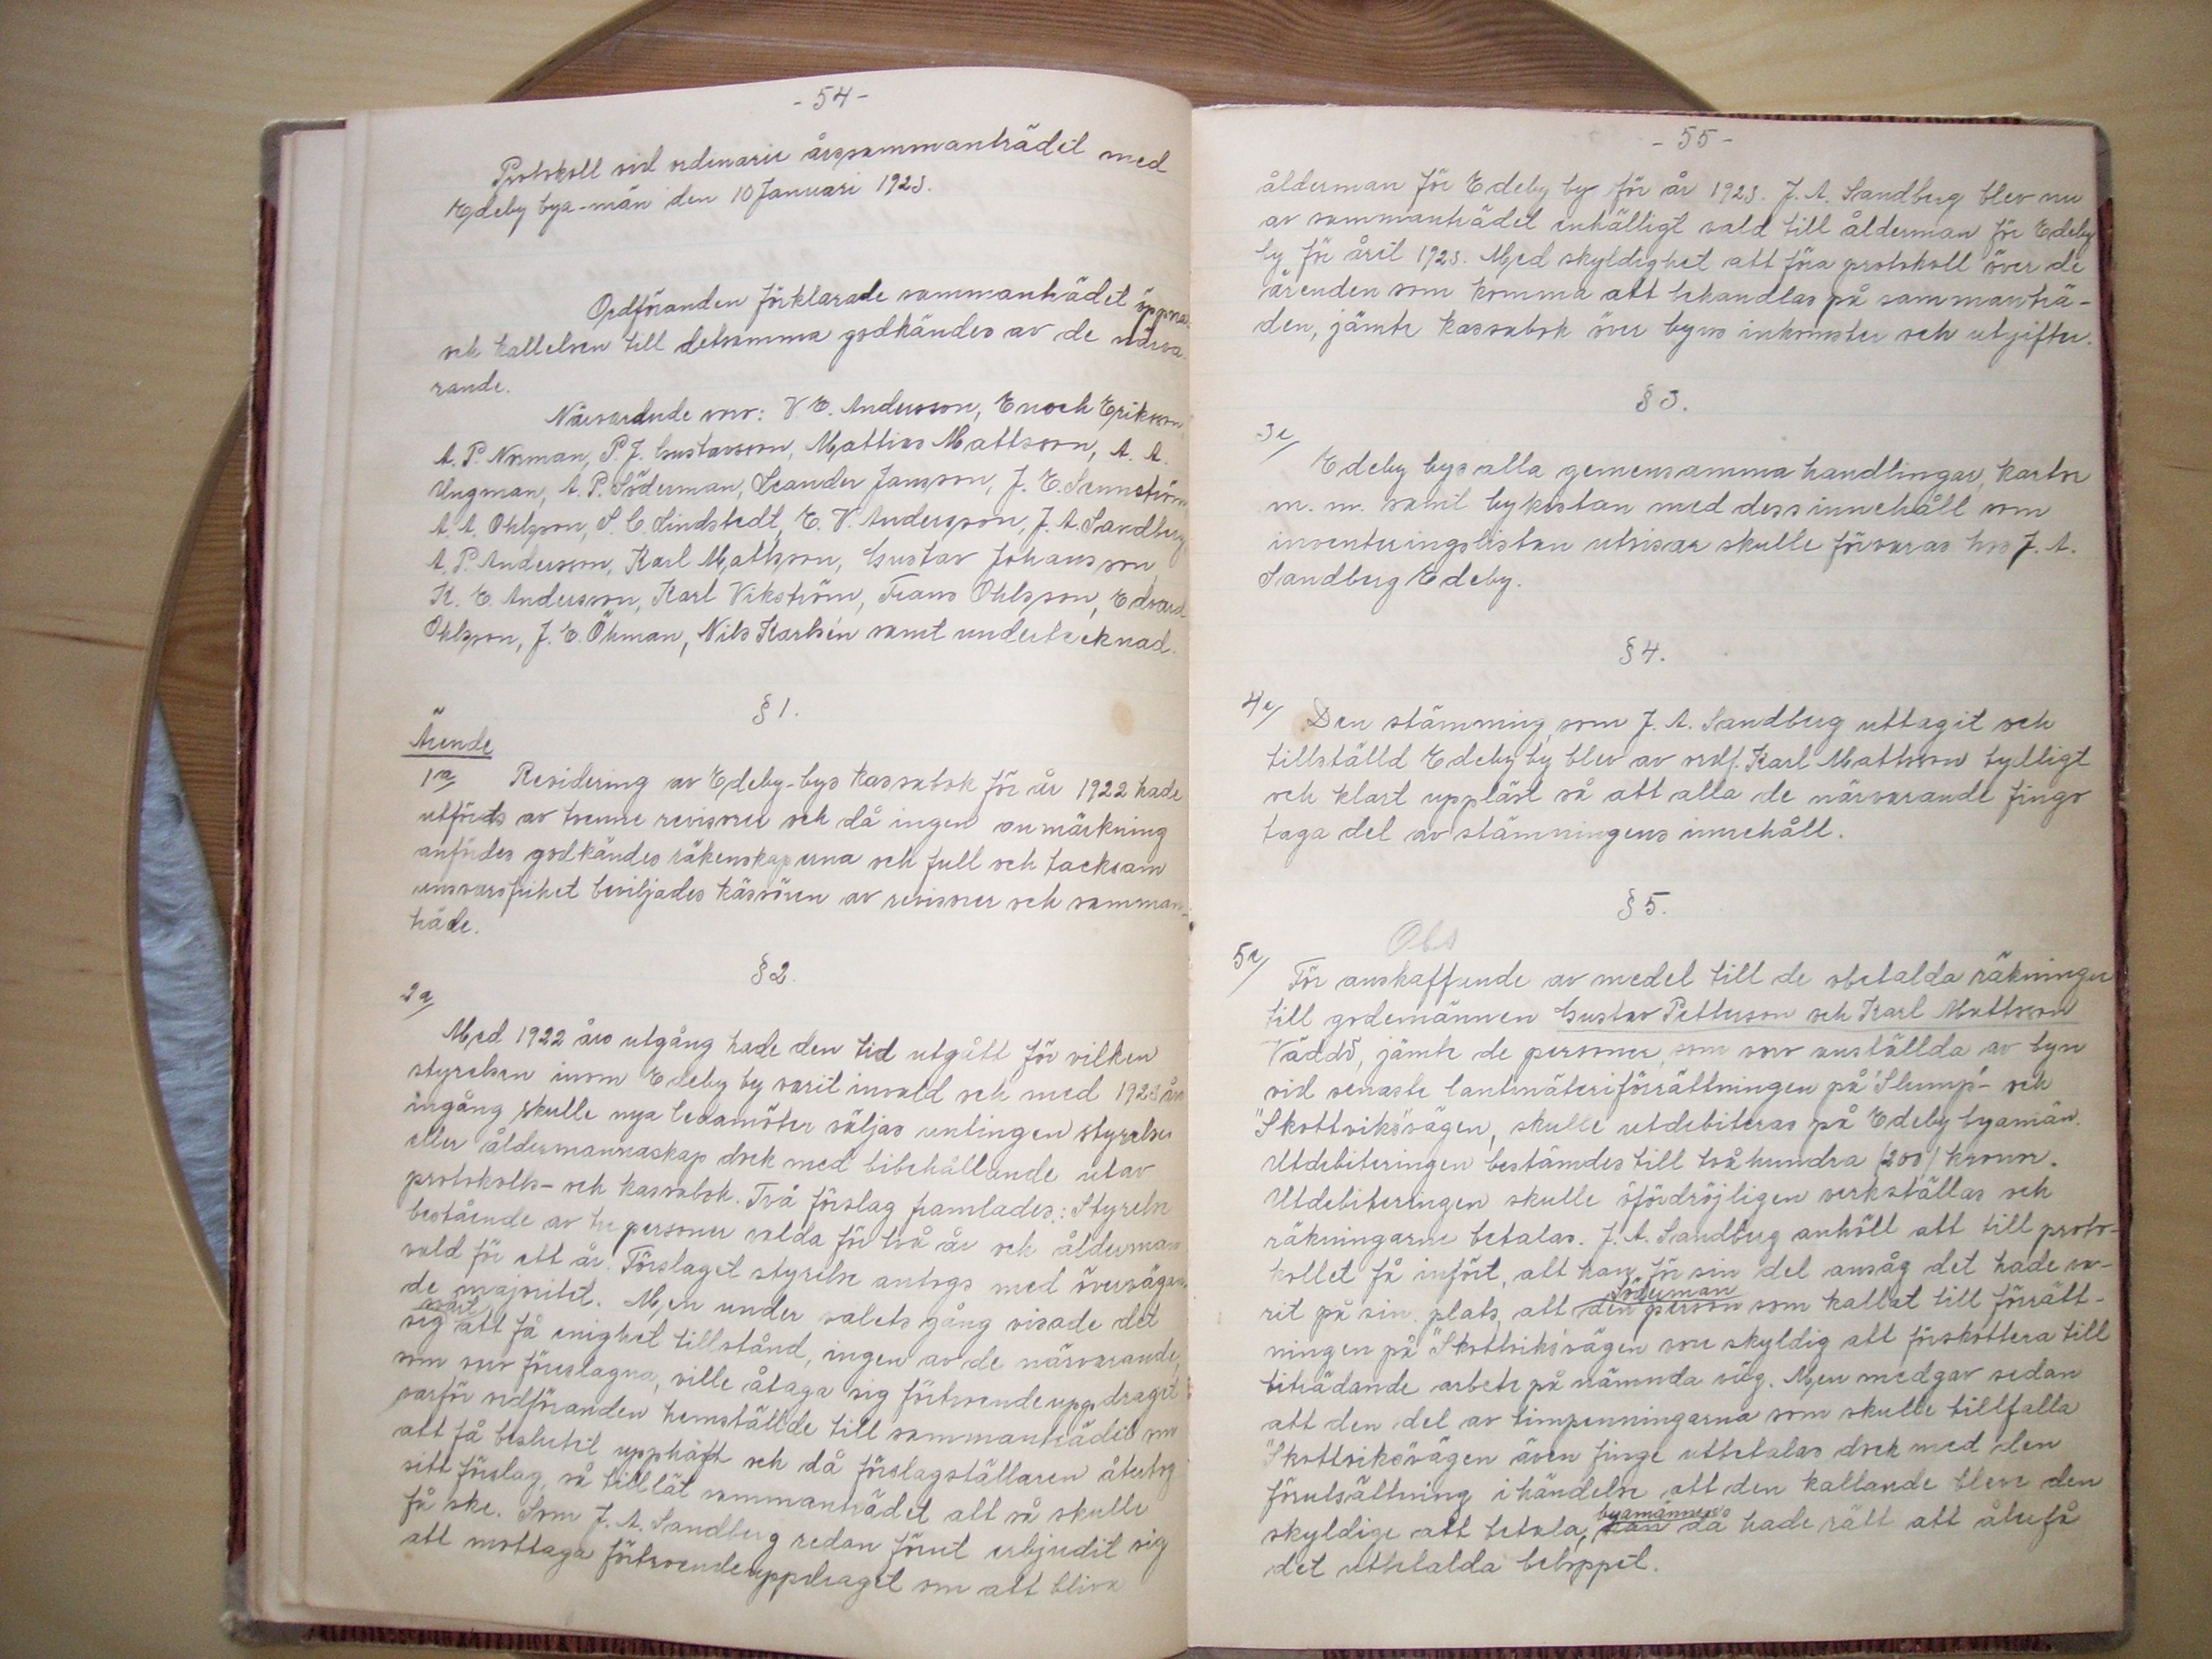 - 54 -
Protokoll vid ordinarie årssammanträdet med
Edeby bya-män den 10 Januari 1923.
Ordföranden förklarade sammanträdet öppnat
och kallelsen till detsamma godkändes av de närva-
rande.
Närvarande voro: V E. Andersson, Enoch Eriksson,
A. P. Norman, P. J. Gustavsson, Mattias Mattsson, A. A.
Ungman, A. P. Söderman, Leander Jansson, J. E. Sennström
A. A. Ohlsson, S. C. Lindstedt, E. V. Andersson, J. A. Sandberg
A. P. Andersson, Karl Mattsson, Gustav Johansson
K. E. Andersson, Karl Vikström, Frans Ohlsson, Edvard
Ohlsson, J. E. Öhman, Nils Karlsén samt undertecknad.
§ 1.
Ärende
1a/ Revidering av Edeby-bys kassabok för år 1922 hade
utförds av tvenne revisorer och då ingen anmärkning
anfördes godkändes räkenskaperna och full och tacksam
ansvarsfrihet beviljades kassören av revisorer och samman-
träde.
§ 2.
2a/
Med 1922 års utgång hade den tid utgått för vilken
styrelsen inom Edeby by varit invald och med 1923 års
ingång skulle nya ledamöter väljas antingen styrelse
eller åldermannaskap dock med bibehållande utav
protokolls- och kassabok. Två förslag framlades: Styrelse
bestående av tre personer valda för två år och ålderman
vald för ett år. Förslaget styrelse antogs med övervägan-
de majoritet. Men under valets gång visade det
sig svårt att få enighet tillstånd, ingen av de närvarande,
som voro föreslagna, ville åtaga sig förtroendeuppdraget
varför ordföranden hemställde till sammanträdet om
att få beslutet upphäft och då förslagställaren återtog
sitt förslag, så tillät sammanträdet att så skulle
få ske. Som J. A. Sandberg redan förut erbjudit sig
att mottaga förtroendeuppdraget om att bliva
- 55 -
ålderman för Edeby by för år 1923. J. A. Sandberg blev nu
av sammanträdet enhälligt vald till ålderman för Edeby
by för året 1923. Med skyldighet att föra protokoll över de
ärenden som komma att behandlas på sammanträ-
den, jämte kassabok över byns inkomster och utgifter.
§ 3.
3e/
Edeby bys alla gemensamma handlingar, kartor
m. m. samt bykistan med dess innehåll som
inventeringslistan utvisar skulle förvaras hos J. A.
Sandberg Edeby.
§ 4.
4e/ Den stämning, som J. A. Sandberg uttagit och
tillställd Edeby by blev av ordf. Karl Mattsson tydligt
och klart uppläst så att alla de närvarande fingo
taga del av stämningens innehåll.
§ 5.
Obs
5e/ För anskaffende av medel till de obetalda räkningar
till godemännen Gustav Pettersson och Karl Mattsson
Väddö, jämte de personer, som voro anställda av byn
vid senaste lantmäteriförrättningen på "Slump"- och
"Skottviks"vägen, skulle utdebiteras på Edeby byamän.
Utdebiteringen bestämdes till två hundra (200) kronor.
Utdebiteringen skulle ofördröjligen verkställas och
räkningarne betalas. J. A. Sandberg anhöll att till proto-
kollet få infört, att han för sin del ansåg det hade va-
rit på sin plats, att den person Söderman som kallat till förrätt-
ningen på "Skottviks"vägen vore skyldig att förskottera till
biträdande arbete på nämnda väg. Men medgav sedan
att den del av timpenningarna som skulle tillfalla
"Skottviksvägen även finge utbetalas dock med den
förutsättning i händelse att den kallande bleve den
skyldige att betala, han byamännen då hade rätt att återfå
det utbetalda beloppet.